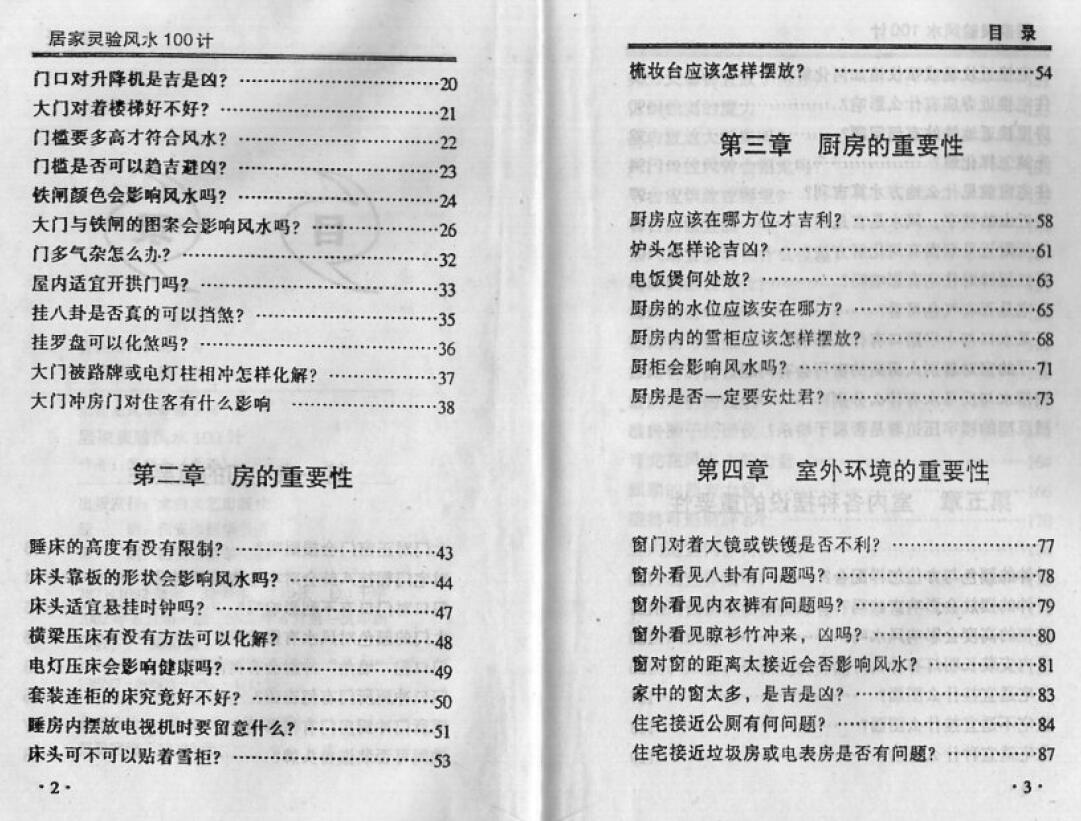 居家灵验风水100计
门口对升降机是吉是凶？……………………20
大门对着楼梯好不好？……………………21
门槛要多高才符合风水？……………………22
门槛是否可以趋吉避凶？……………………23
铁闸颜色会影响风水吗？……………………24
大门与铁闸的图案会影响风水吗？…………26
门多气杂怎么办？……………………32
屋内适宜开拱门吗？……………………33
挂八卦是否真的可以挡煞？…………………35
挂罗盘可以化煞吗？……………………36
大门被路牌或电灯柱相冲怎样化解？………37
大门冲房门对住客有什么影响 …………38
第二章 房的重要性
睡床的高度有没有限制？……………………43
床头靠板的形状会影响风水吗？……………44
床头适宜悬挂时钟吗？……………………47
横梁压床有没有方法可以化解？……………48
电灯压床会影响健康吗？……………………49
套装连柜的床究竟好不好？…………………50
睡房内摆放电视机时要留意什么？…………51
床头可不可以贴着雪柜？……………………53
·2·
目 录
梳妆台应该怎样摆放？……………………54
第三章 厨房的重要性
厨房应该在哪方位才吉利？…………………58
炉头怎样论吉凶？……………………61
电饭煲何处放？……………………63
厨房的水位应该安在哪方？…………………65
厨房内的雪柜应该怎样摆放？………………68
厨柜会影响风水吗？……………………71
厨房是否一定要安灶君？……………………73
第四章 室外环境的重要性
窗门对着大镜或铁镬是否不利？……………77
窗外看见八卦有问题吗？……………………78
窗外看见内衣裤有问题吗？…………………79
窗外看见晾衫竹冲来，凶吗？………………80
窗对窗的距离太接近会否影响风水？………81
家中的窗太多，是吉是凶？…………………83
住宅接近公厕有何问题？……………………84
住宅接近垃圾房或电表房是否有问题？……87
·3·